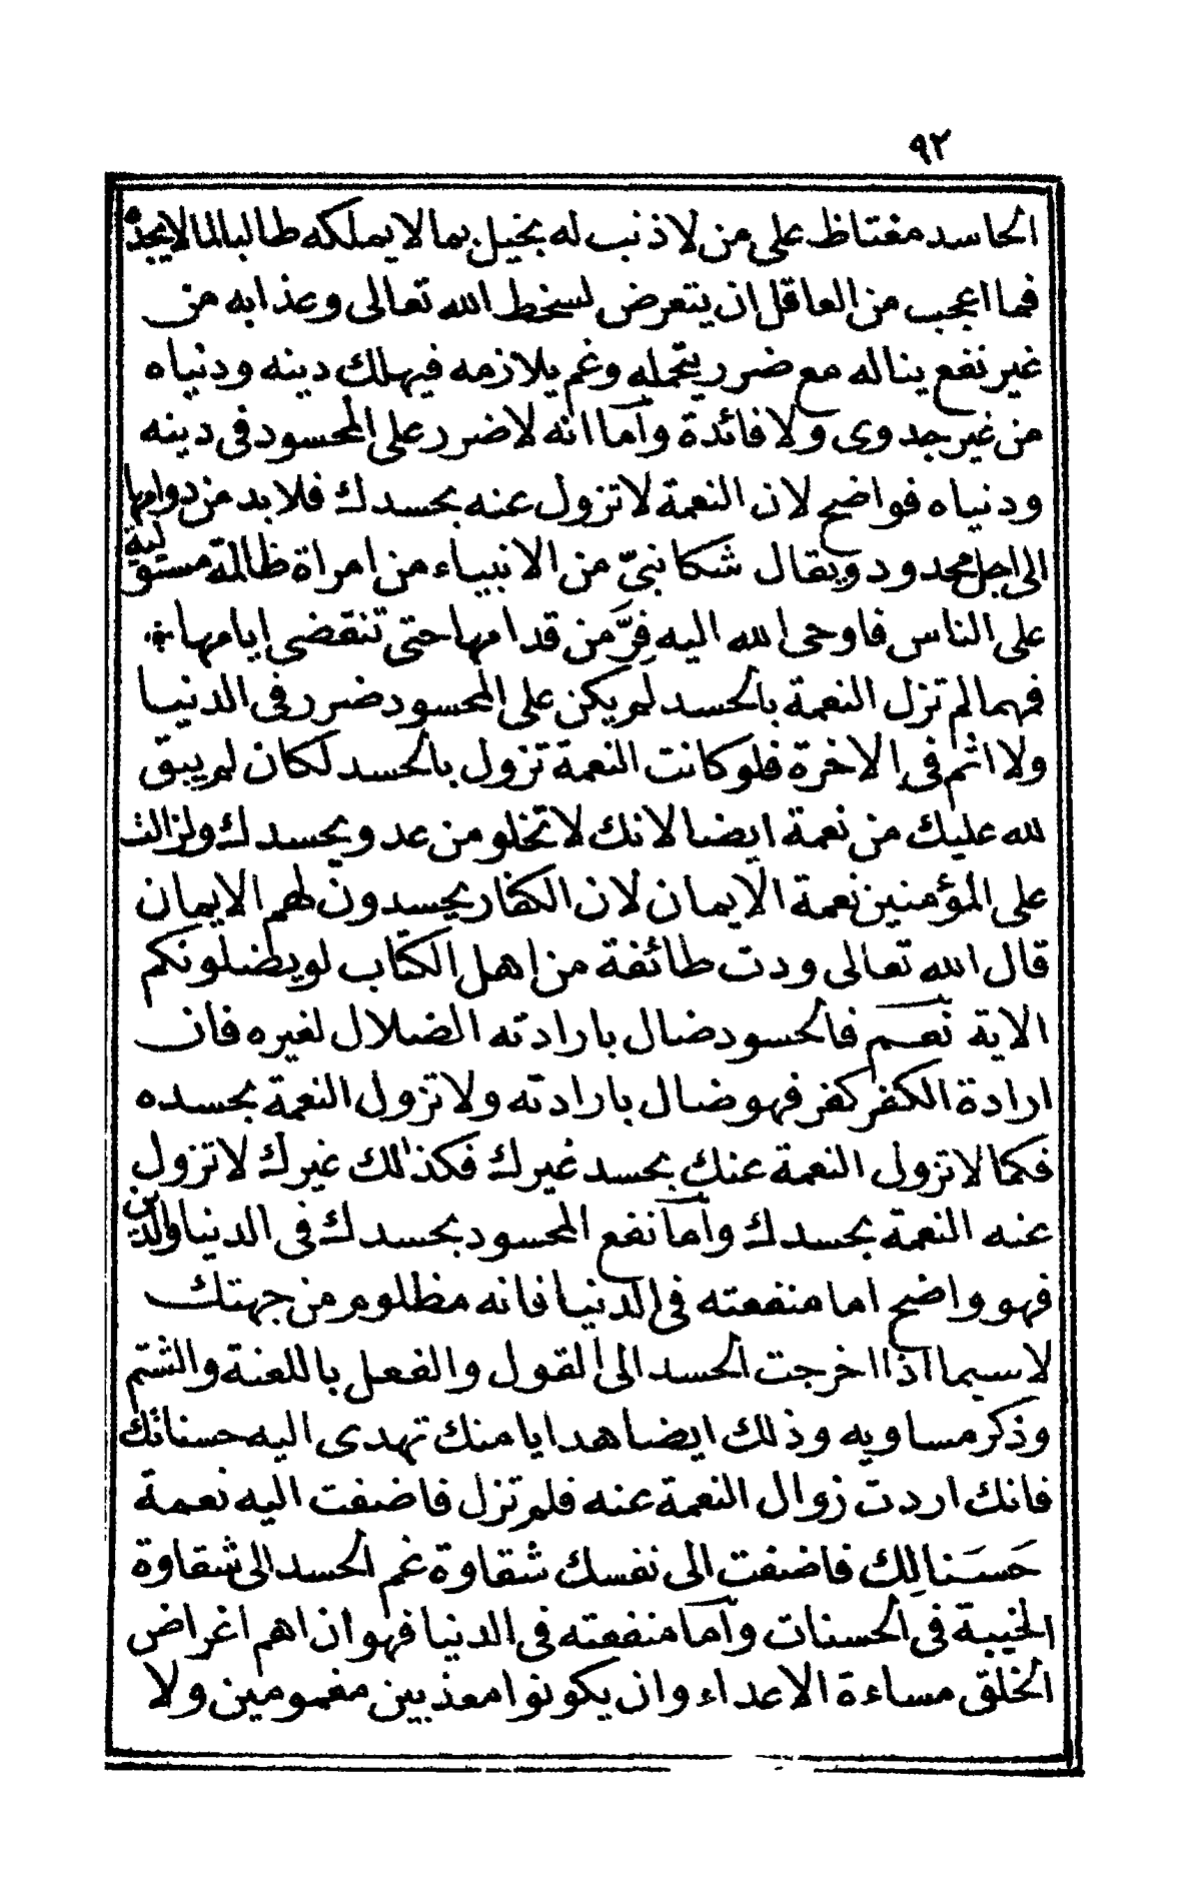 ٩٢
الحاسد مغتاظ على من لا ذنب له بخيل بما لا يملكه طالبا لما لا يجده
فما اعجب من العاقل ان يتعرض لسخط الله تعالى وعذابه من
غير نفع يناله مع ضرر يتحمله وغم يلازمه فيهلك دينه ودنياه
من غير جدوى ولا فائدة وأما انه لا ضرر على المحسود فى دينه
ودنياه فواضح لان النعمة لا تزول عنه بحسدك فلا بد من دوامها
الى اجل محدود ويقال شكا نبىّ من الانبياء من امراة ظالمة مستولية
على الناس فاوحى الله اليه فِرَّ من قدامها حتى تنقضى ايامها
فمهما لم تزل النعمة بالحسد لم يكن على المحسود ضرر فى الدنيا
ولا اثم فى الاخرة فلو كانت النعمة تزول بالحسد لكان لم يبق
لله عليك من نعمة ايضا لانك لا تخلو من عدو يحسدك ولزالت
على المؤمنين نعمة الايمان لان الكفار يحسدون لهم الايمان
قال الله تعالى ودت طائفة من اهل الكتاب لو يضلونكم
الاية نعم فالحسود ضال بارادته الضلال لغيره فان
ارادة الكفر كفر فهو ضال بارادته ولا تزول النعمة بحسده
فكما لا تزول النعمة عنك بحسد غيرك فكذلك غيرك لا تزول
عنه النعمة بحسدك وأما نفع المحسود بحسدك فى الدنيا والدين
فهو واضح اما منفعته فى الدنيا فانه مظلوم من جهتك
لا سيما اذا اخرجت الحسد الى القول والفعل باللعنة والشتم
وذكر مساويه وذلك ايضا هدايا منك تهدى اليه حسناتك
فانك اردت زوال النعمة عنه فلم تزل فاضفت اليه نعمة
حَسَنا لِك فاضفت الى نفسك شقاوة غم الحسد الى شقاوة
الخيبة فى الحسنات وأما منفعته فى الدنيا فهو ان اهم اغراض
الخلق مساءة الاعداء وان يكونوا معذبين مغمومين ولا